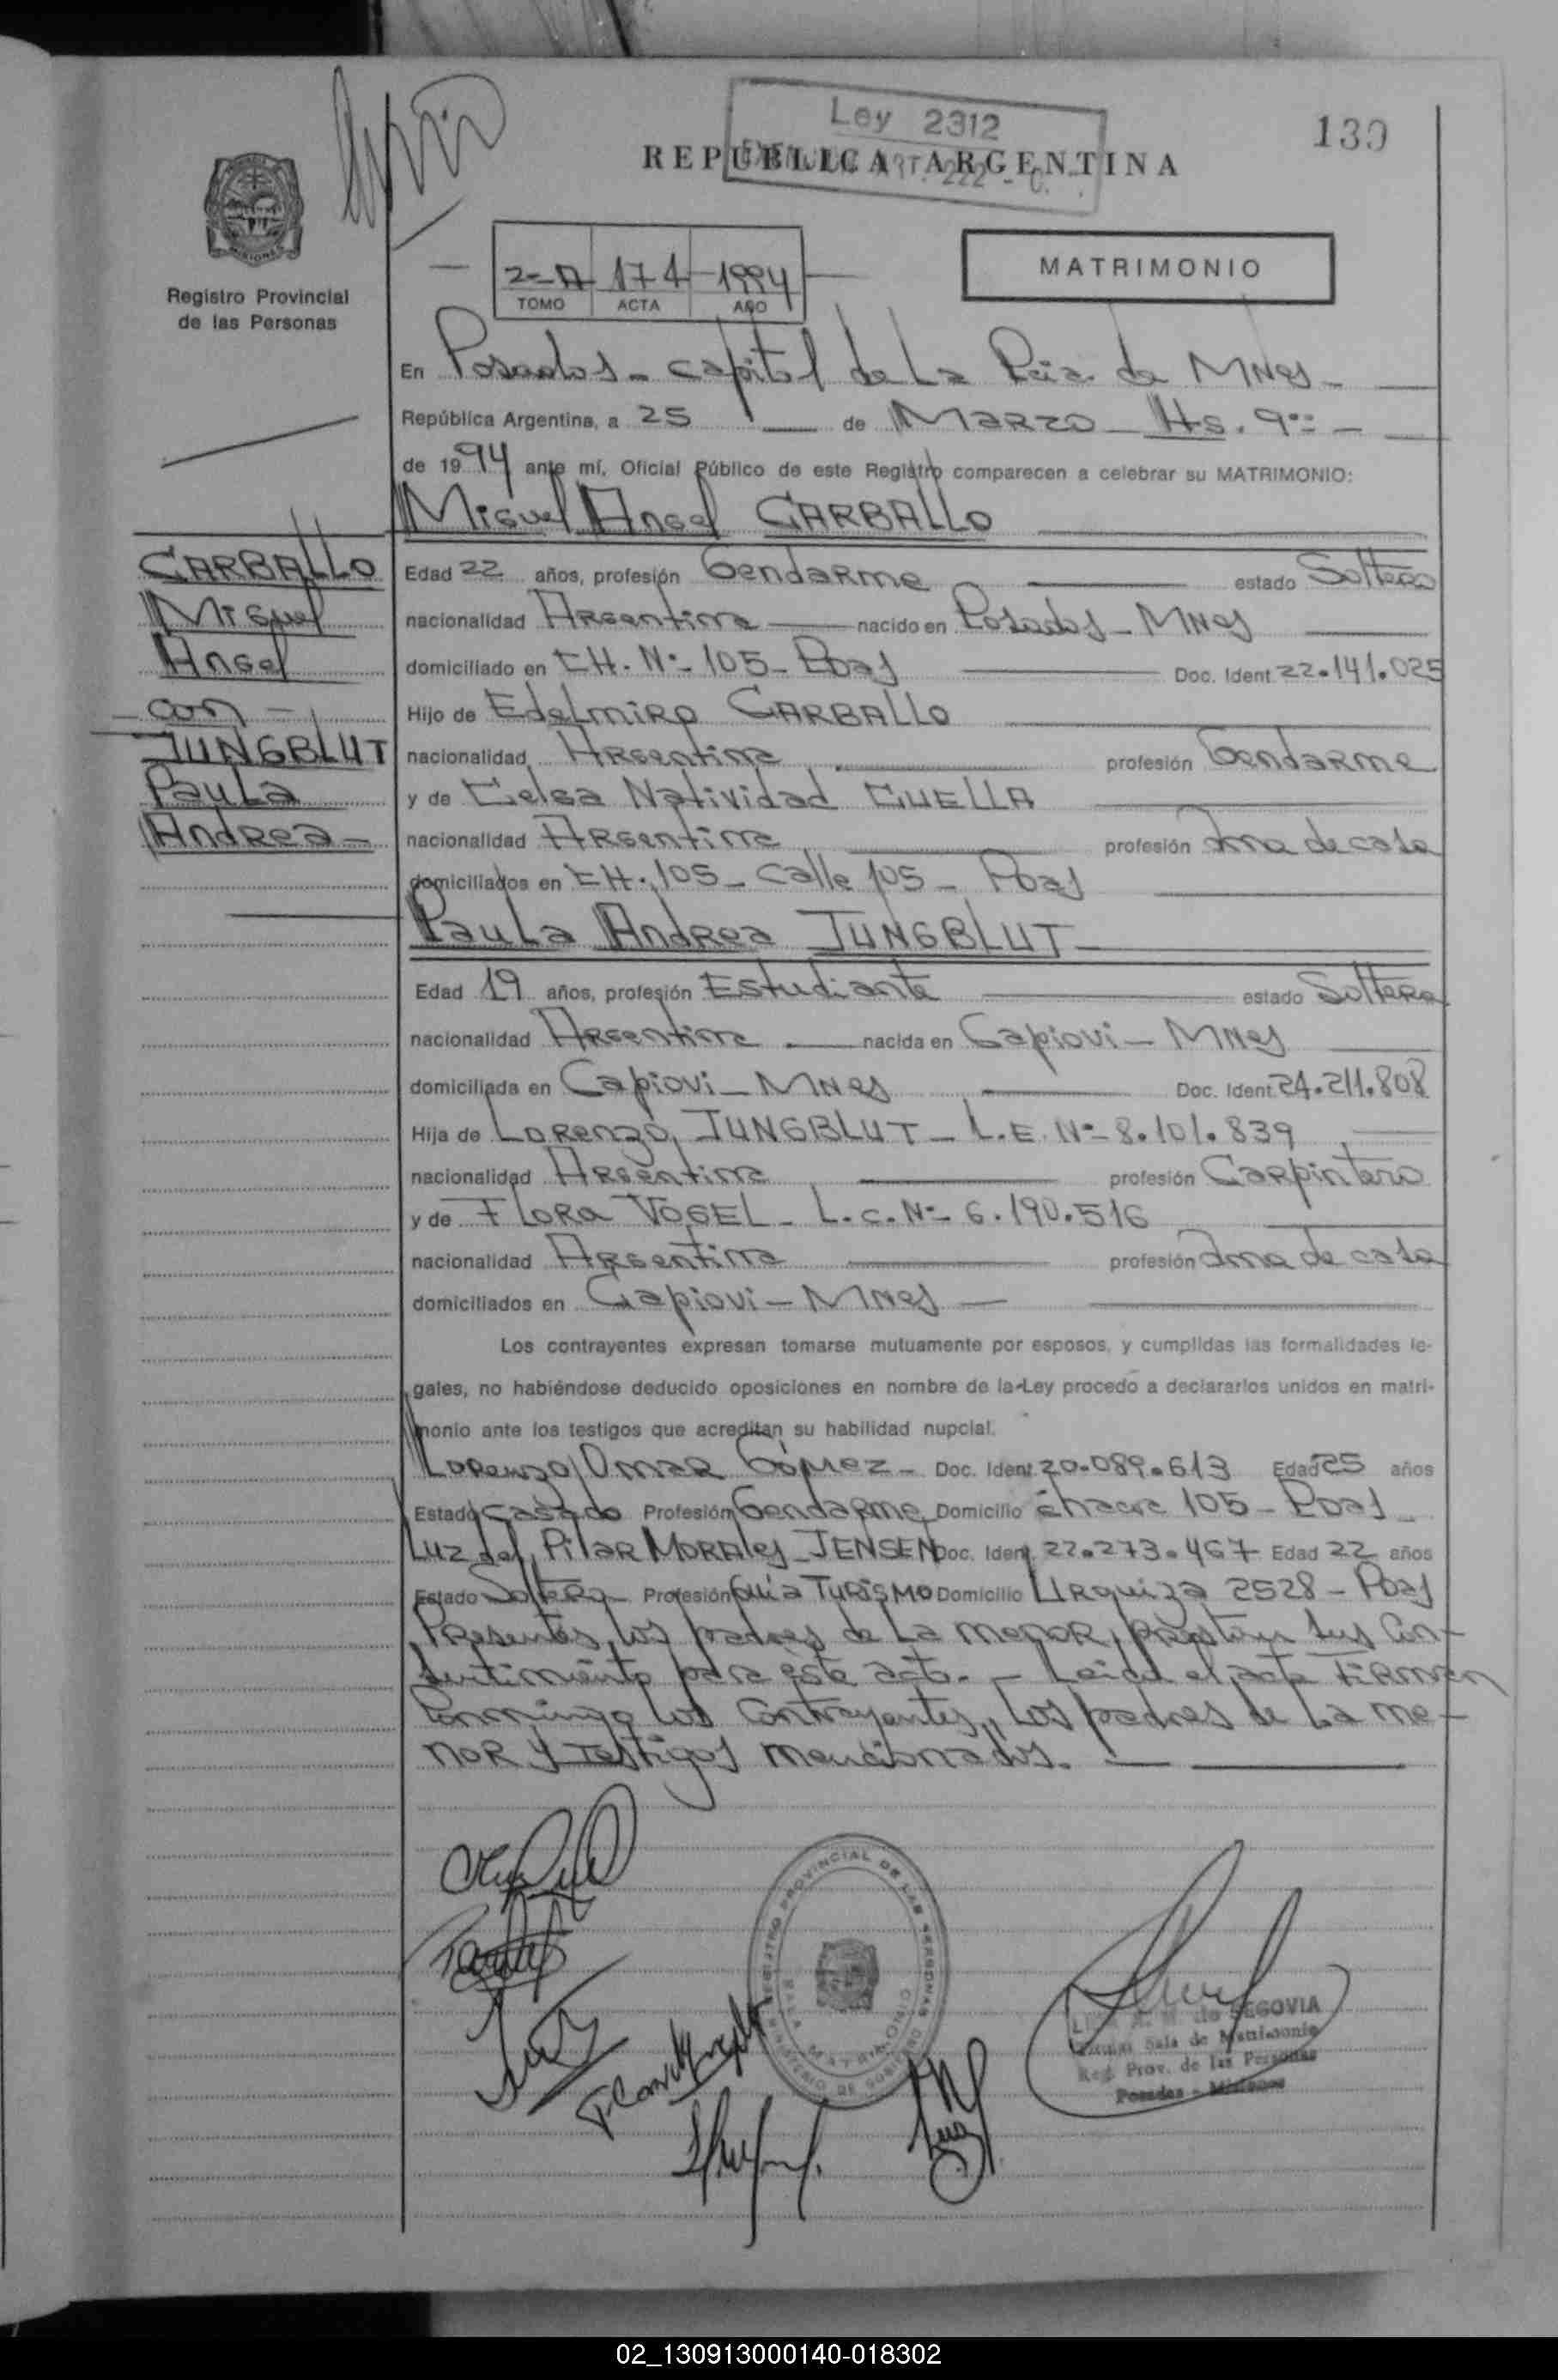 Ley 2312
139
REPUBLICA ARGENTINA
MATRIMONIO
2-A 174 1994
TOMO ACTA AÑO
Registro Provincial
de las Personas
En Posadas - Capital de La Pcia. de MNes -
República Argentina, a 25 de MARZO Hs. 9:00 -
de 1994 ante mí, Oficial Público de este Registro comparecen a celebrar su MATRIMONIO:
Miguel Angel CARBALLO
CARBALLO
Miguel
Angel
con -
JUNGBLUT
Paula
Andrea -
Edad 22 años, profesión Gendarme estado Soltero
nacionalidad Argentina nacido en Posadas - MNes
domiciliado en CH. Nº 105 - Pdas Doc. Ident 22.141.025
Hijo de Edelmiro CARBALLO
nacionalidad Argentina profesión Gendarme
y de Celsa Natividad CUELLA
nacionalidad Argentina profesión Ama de casa
domiciliados en CH. 105 - Calle 105 - Pdas
Paula Andrea JUNGBLUT
Edad 19 años, profesión Estudiante estado Soltera
nacionalidad Argentina nacida en Capiovi - MNes
domiciliada en Capiovi - MNes Doc. Ident 24.211.808
Hija de Lorenzo JUNGBLUT - L.E. Nº 8.101.839
nacionalidad Argentina profesión Carpintero
y de Flora VOGEL - L.C. Nº 6.190.516
nacionalidad Argentina profesión Ama de casa
domiciliados en Capiovi - MNes -
Los contrayentes expresan tomarse mutuamente por esposos, y cumplidas las formalidades le-
gales, no habiéndose deducido oposiciones en nombre de la Ley procedo a declararlos unidos en matri-
monio ante los testigos que acreditan su habilidad nupcial.
Lorenzo Omar Gómez - Doc. Ident 20.089.613 Edad 25 años
Estado Casado Profesión Gendarme Domicilio chacra 105 - Pdas -
Luz del Pilar MORALES JENSEN Doc. Ident. 22.273.467 Edad 22 años
Estado Soltera Profesión Guía TURISMO Domicilio Urquiza 2528 - Pdas
Presentes, los padres de La menor, prestan sus Con-
sentimiento para éste acto. - Leida el acta Firman
Conmingo los Contrayentes, Los padres de La me-
nor y Testigos mencionados. -
REGISTRO PROVINCIAL DE LAS PERSONAS
MINISTERIO DE GOBIERNO
SALA MATRIMONIO
de SEGOVIA
Sala de Matrimonio
Reg. Prov. de las Personas
Posadas - Misiones
02_130913000140-018302